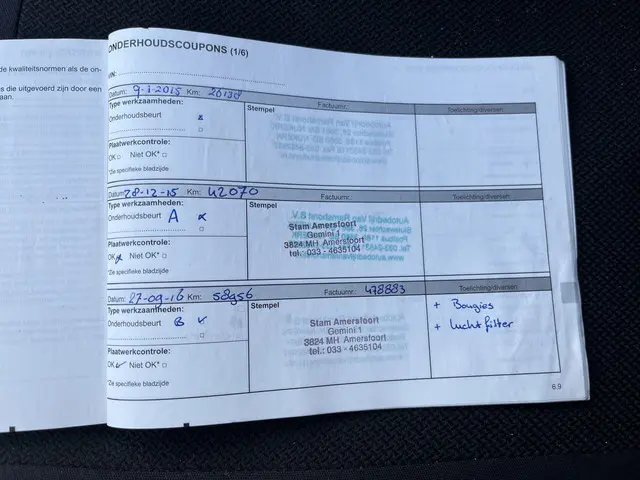 de kwaliteitsnormen als de on-
s die uitgevoerd zijn door een
aan.
ONDERHOUDSCOUPONS (1/6)
VIN:
Datum: 9-1-2015 Km: 20130
Factuurnr.
Toelichting/diversen
Type werkzaamheden:
Stempel
Onderhoudsbeurt x
Plaatwerkcontrole:
OK Niet OK*
*Zie specifieke bladzijde
Datum: 28-12-15 Km: 42070
Factuurnr.
Toelichting/diversen
Type werkzaamheden:
Stempel
Onderhoudsbeurt A x
Stam Amersfoort
Gemini 1
3824 MH Amersfoort
tel.: 033 - 4635104
Plaatwerkcontrole:
OK Niet OK*
*Zie specifieke bladzijde
Datum: 27-09-16 Km: 58956
Factuurnr.: 478883
Toelichting/diversen
Type werkzaamheden:
Stempel
Onderhoudsbeurt B ✓
+ Bougies
+ luchtfilter
Stam Amersfoort
Gemini 1
3824 MH Amersfoort
tel.: 033 - 4635104
Plaatwerkcontrole:
OK ✓ Niet OK*
*Zie specifieke bladzijde
6.9